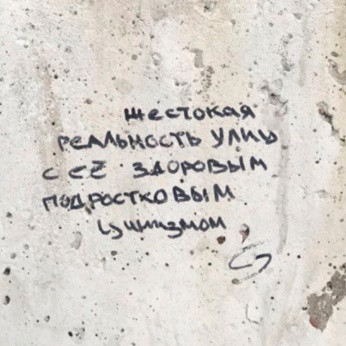 жестокая
реальность улиц
с её здоровым
подростковым
цинизмом,